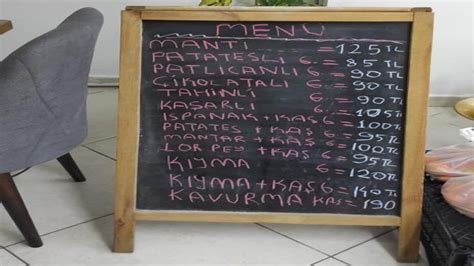 MENU
MANTI = 125 TL
PATATESLİ G = 85 TL
PATLICANLI G = 90 TL
ÇİKOLATALI G = 90 TL
TAHİNLİ G = 90 TL
KAŞARLI G = 105 TL
ISPANAK + KAŞ G = 100 TL
PATATES + KAŞ G = 95 TL
MANTAR + KAŞ G = 100 TL
LOR PEY G = 95 TL
KIYMA G = 120 TL
KIYMA + KAŞ G = TL
KAVURMA KAŞ = 190